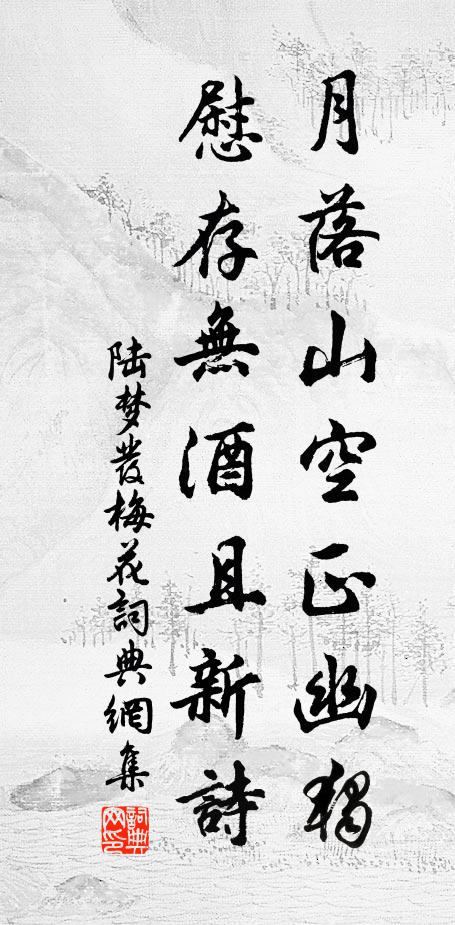 月落山空正幽獨
慰存無酒且新詩
陆梦發梅花詞典網集
詞典網印